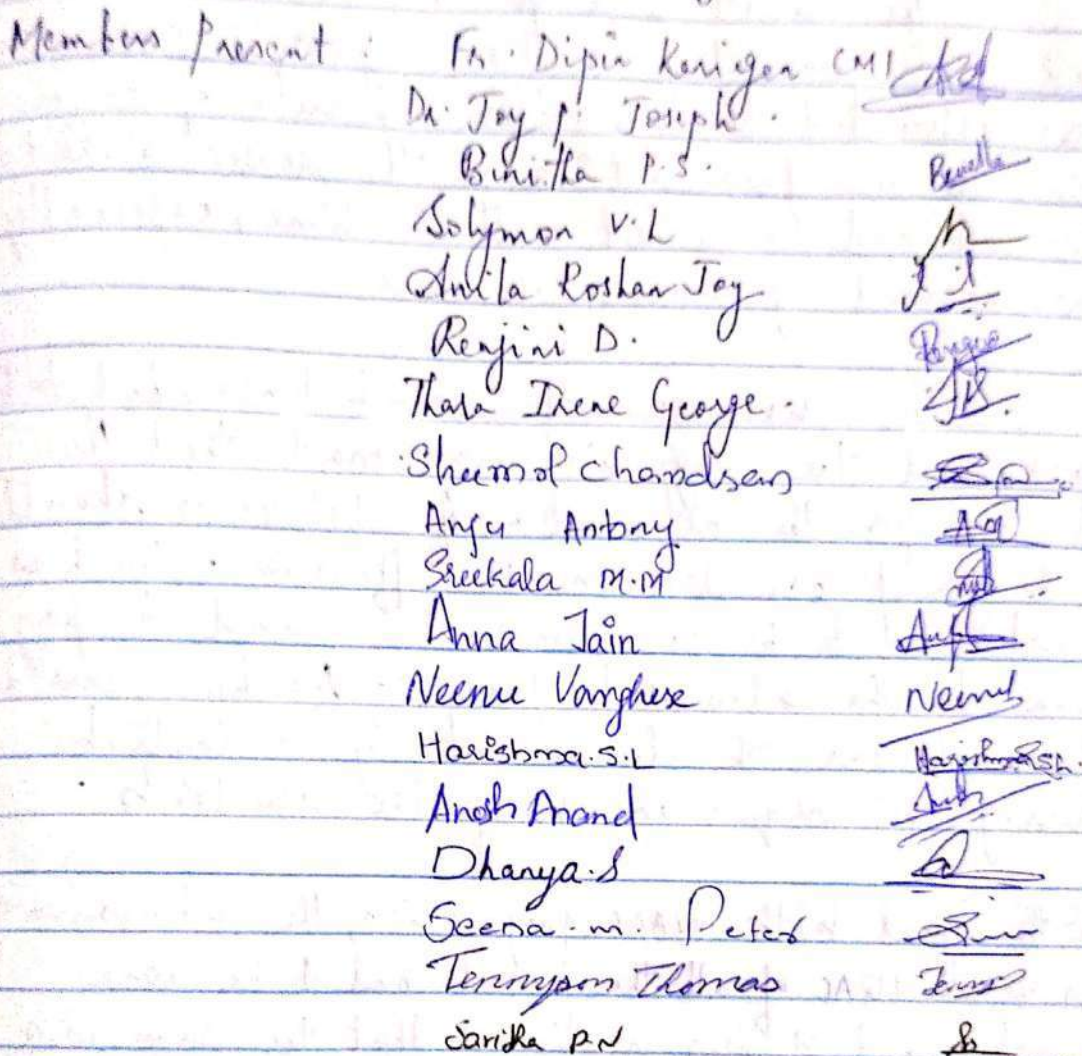 Members Present : Fr. Dipin Karigen CMI
Dr. Joy P. Joseph.
Binitha P.S.
Solymon V.L
Anila Roshan Joy
Renjini D.
Thara Irene George.
Sheemol Chandran
Anju Antony
Sreekala M.M
Anna Jain
Neenu Varghese Neenu
Harishma.S.L Harishma S.L.
Anosh Anand
Dhanya.S
Seena.m. Peter
Tennyson Thomas
Saritha P.N